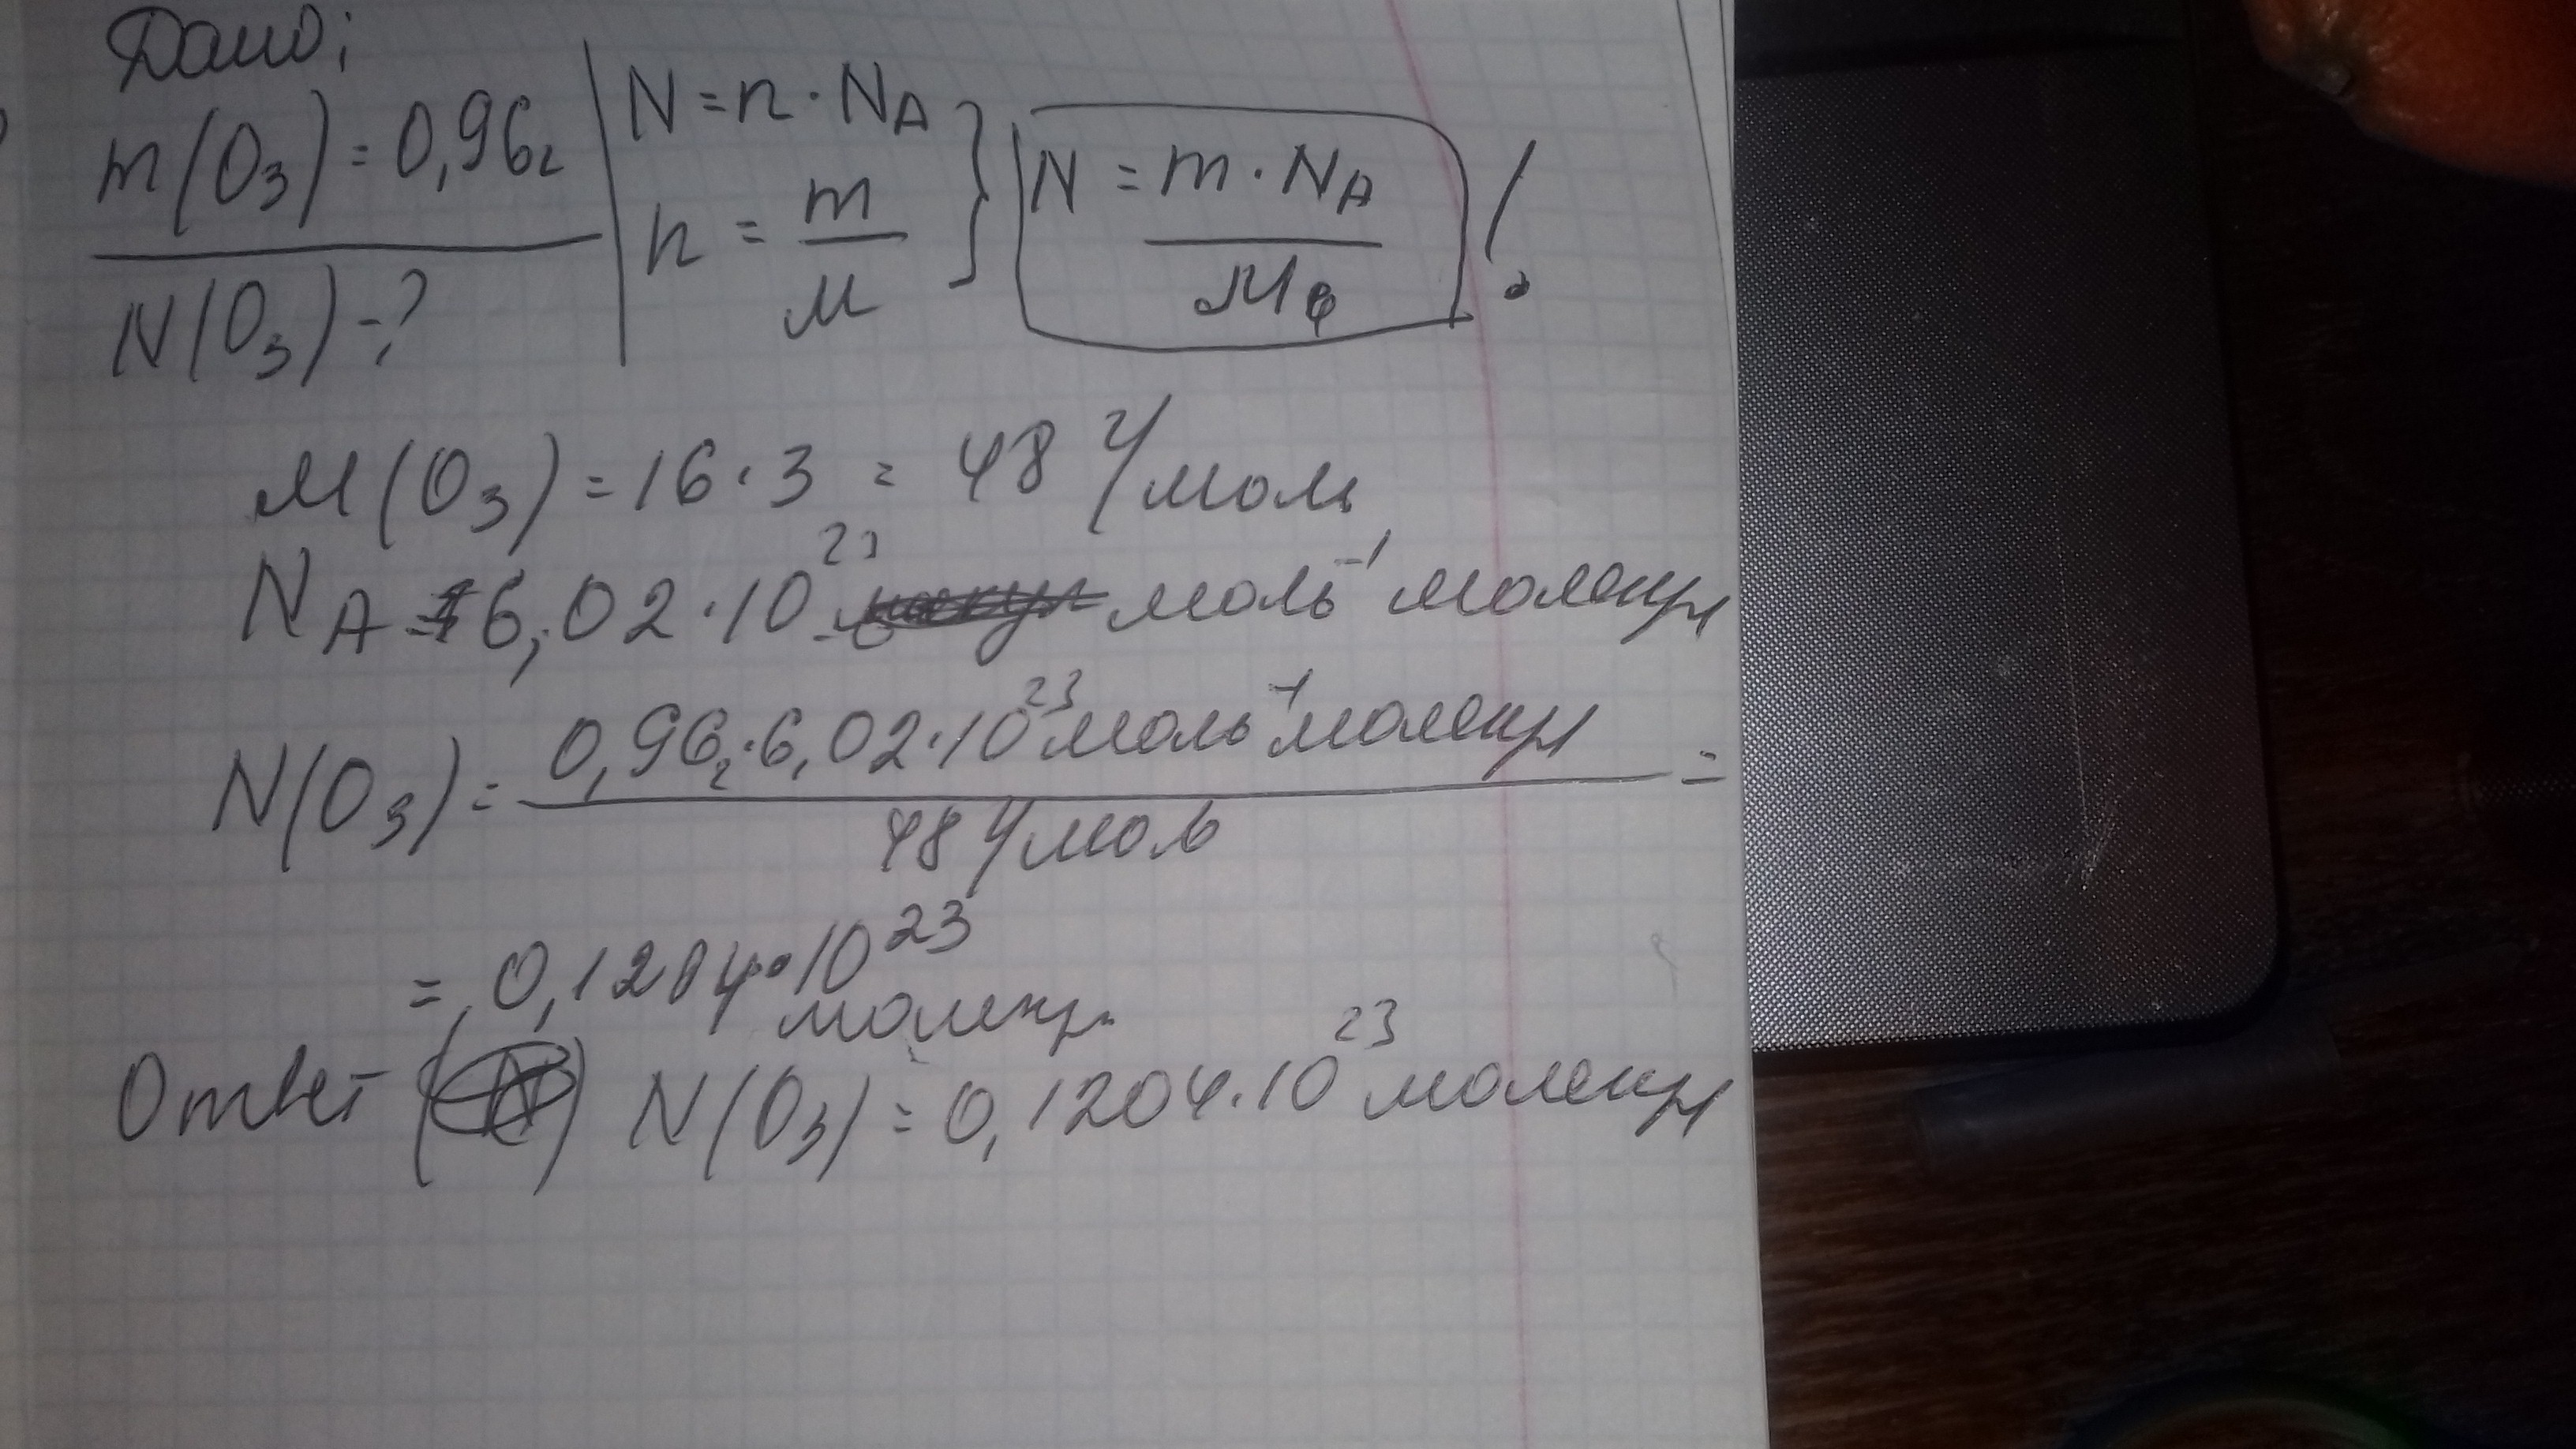 Дано:
m(O₃) = 0,96г
N(O₃) - ?
N = n · N_A
n = m/M
N = m · N_A / M !
M(O₃) = 16 · 3 = 48 г/моль
N_A = 6,02 · 10²³ моль⁻¹ молекул
N(O₃) = 0,96г · 6,02 · 10²³ моль⁻¹ молекул / 48 г/моль =
= 0,1204 · 10²³ молекул
Ответ N(O₃) = 0,1204 · 10²³ молекул